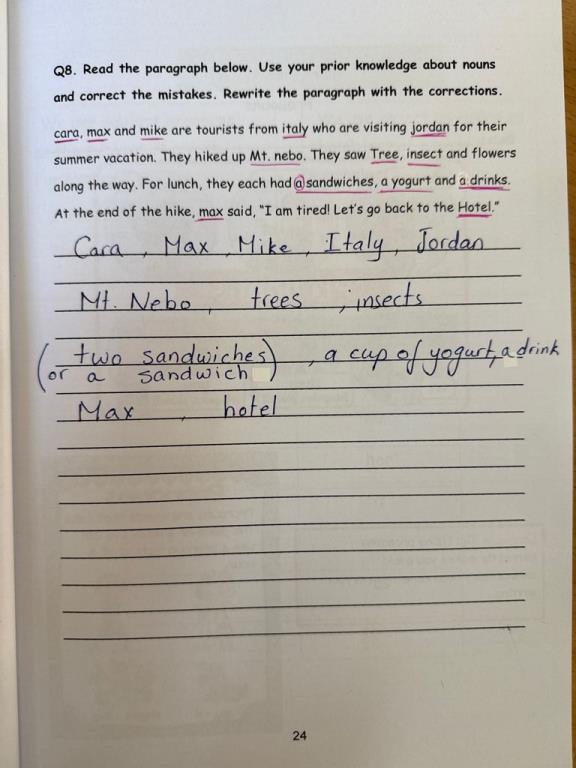 Q8. Read the paragraph below. Use your prior knowledge about nouns
and correct the mistakes. Rewrite the paragraph with the corrections.
cara, max and mike are tourists from italy who are visiting jordan for their
summer vacation. They hiked up Mt. nebo. They saw Tree, insect and flowers
along the way. For lunch, they each had a sandwiches, a yogurt and a drinks.
At the end of the hike, max said, "I am tired! Let's go back to the Hotel."
Cara, Max, Mike, Italy, Jordan
Mt. Nebo, trees, insects
(two sandwiches), a cup of yogurt, a drink
or a sandwich
Max, hotel
24